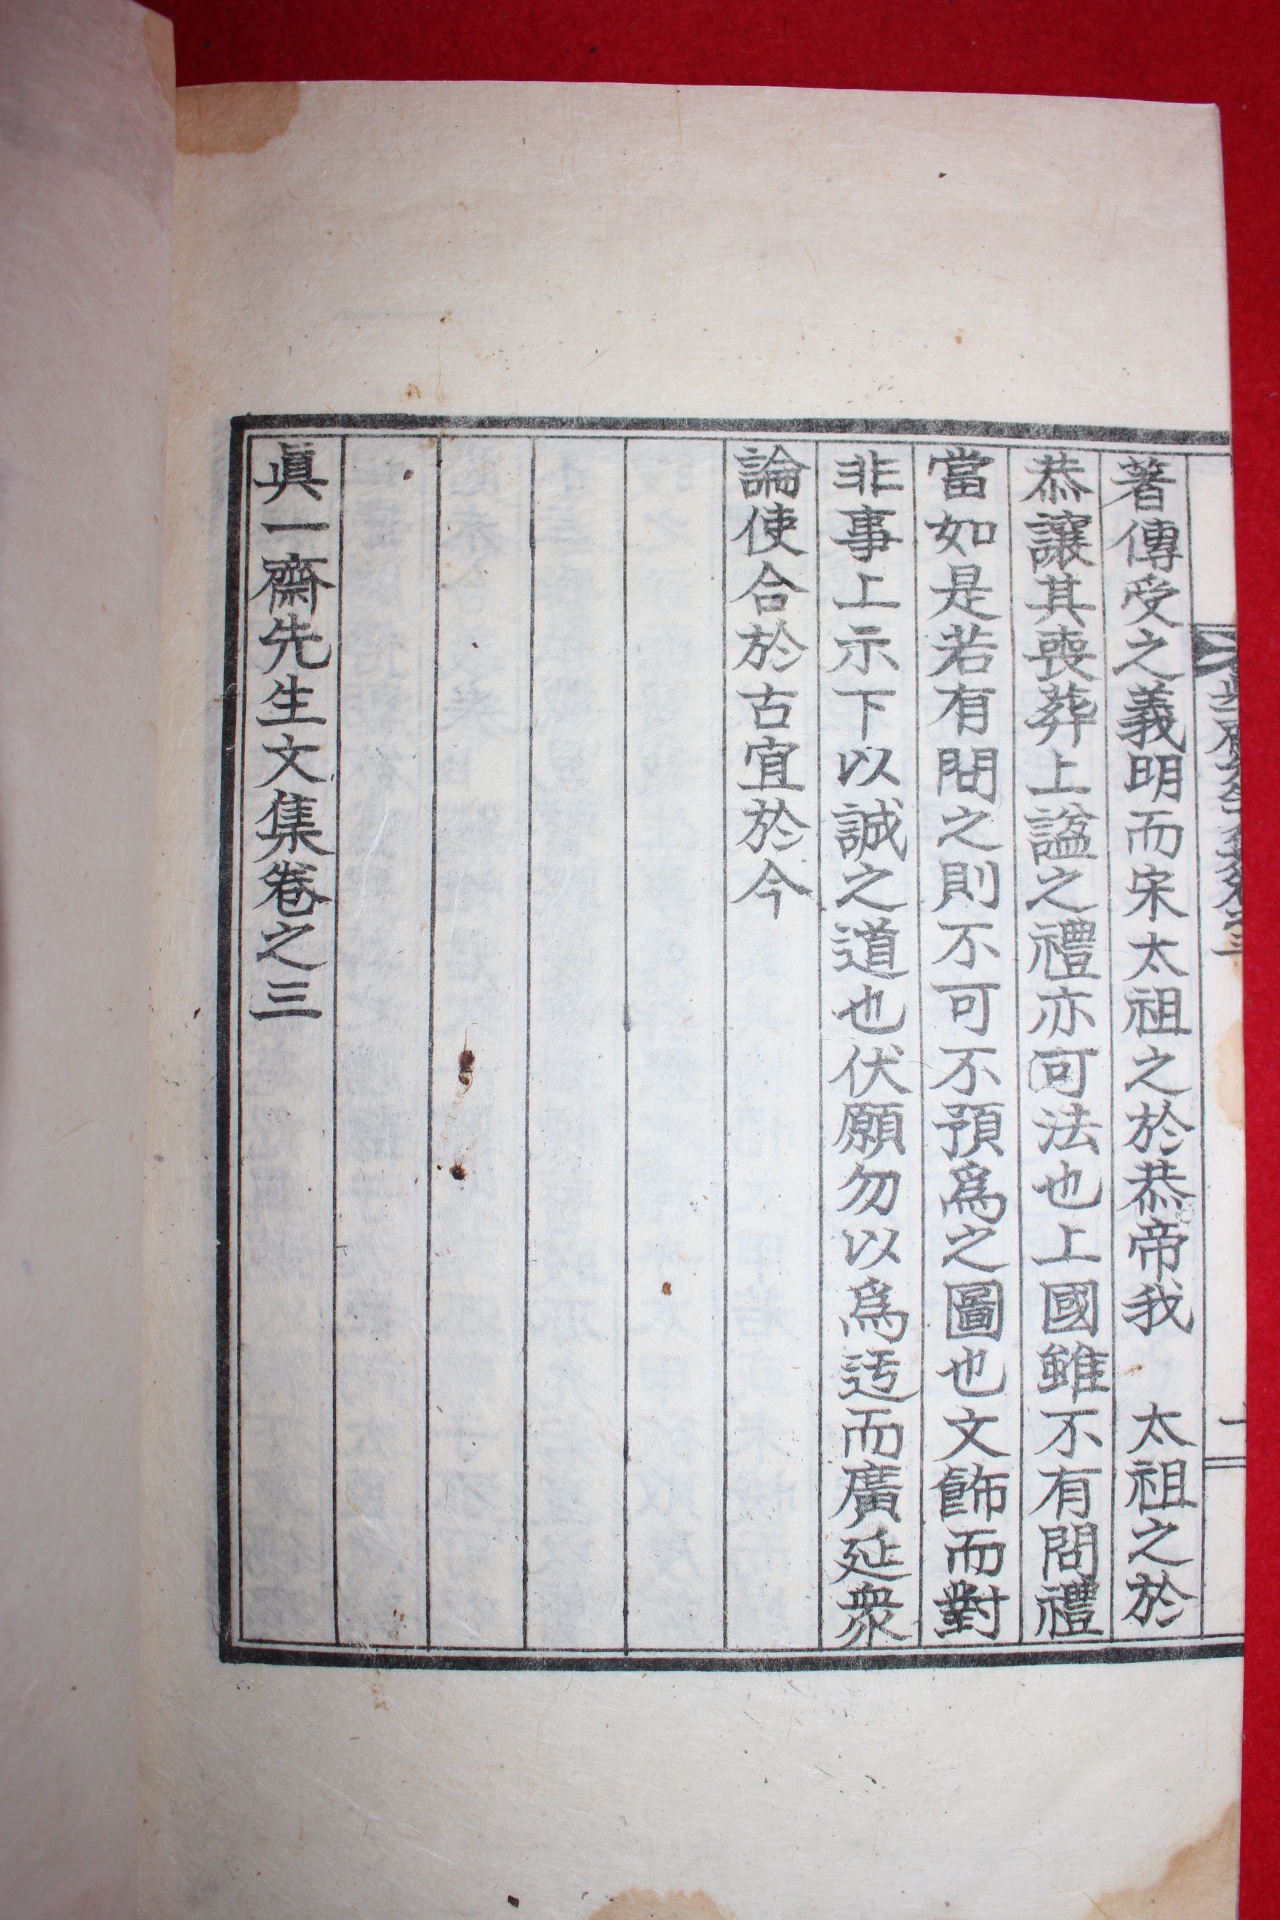 著傳受之義明而宋太祖之於恭帝我 太祖之於
恭讓其喪葬上謚之禮亦可法也上國雖不有問禮
當如是若有問之則不可不預爲之圖也文飾而對
非事上示下以誠之道也伏願勿以爲迃而廣延衆
論使合於古宜於今
眞一齋先生文集卷之三